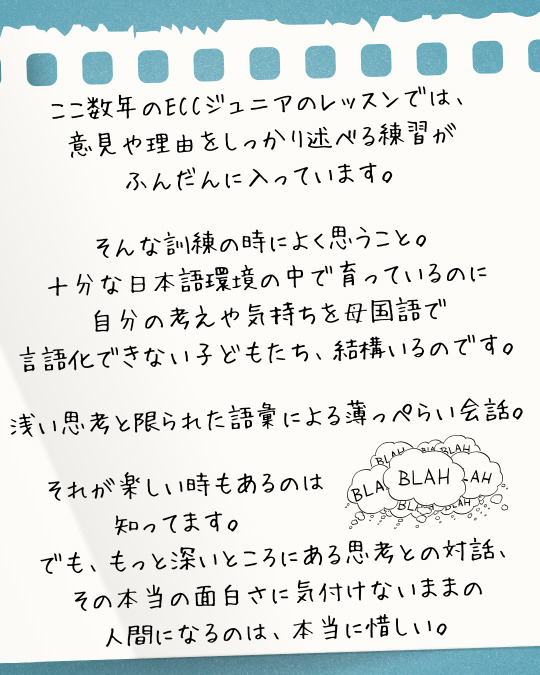 ここ数年のECCジュニアのレッスンでは、
意見や理由をしっかり述べる練習が
ふんだんに入っています。
そんな訓練の時によく思うこと。
十分な日本語環境の中で育っているのに
自分の考えや気持ちを母国語で
言語化できない子どもたち、結構いるのです。
浅い思考と限られた語彙による薄っぺらい会話。
BLAH BLAH BLAH
BLAH BLAH AH
BLAH BLAH
それが楽しい時もあるのは
知ってます。
でも、もっと深いところにある思考との対話、
その本当の面白さに気付けないままの
人間になるのは、本当に惜しい。